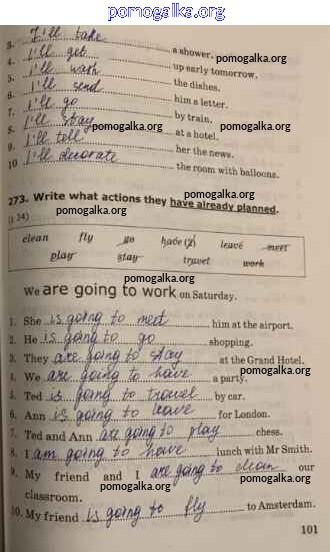 pomogalka.org
3. I'll take a shower.
4. I'll get up early tomorrow.
5. I'll wash the dishes.
pomogalka.org
6. I'll send him a letter.
7. I'll go by train.
8. I'll stay at a hotel.
pomogalka.org pomogalka.org
9. I'll tell her the news.
10 I'll decorate the room with balloons.
pomogalka.org
273. Write what actions they have already planned.
pomogalka.org
clean fly go have (2) leave meet
play stay travel work
pomogalka.org
We are going to work on Saturday.
pomogalka.org
1. She is going to meet him at the airport.
2. He is going to go shopping.
3. They are going to stay at the Grand Hotel.
4. We are going to have a party.
pomogalka.org pomogalka.org
5. Ted is going to travel by car.
6. Ann is going to leave for London.
7. Ted and Ann are going to play chess.
pomogalka.org
8. I am going to have lunch with Mr Smith.
9. My friend and I are going to clean our
pomogalka.org pomogalka.org
classroom.
10. My friend is going to fly to Amsterdam.
pomogalka.org
101